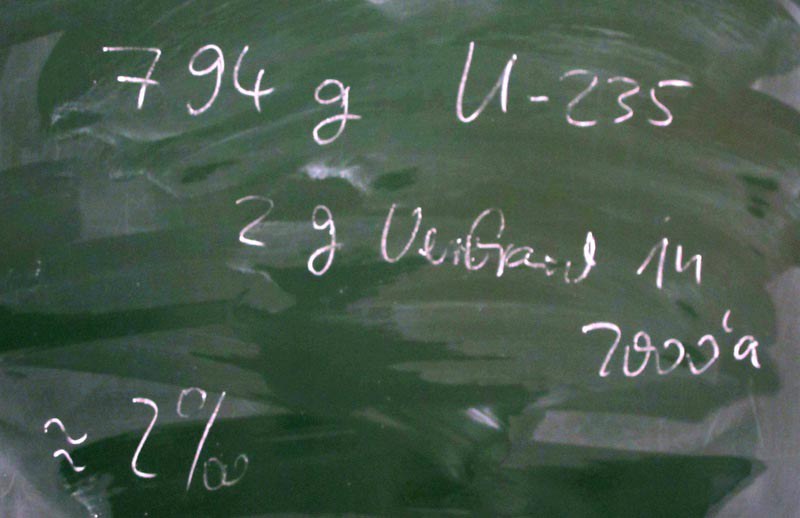 794 g U-235
2 g Verbrand in
7000'a
≈ 2‰